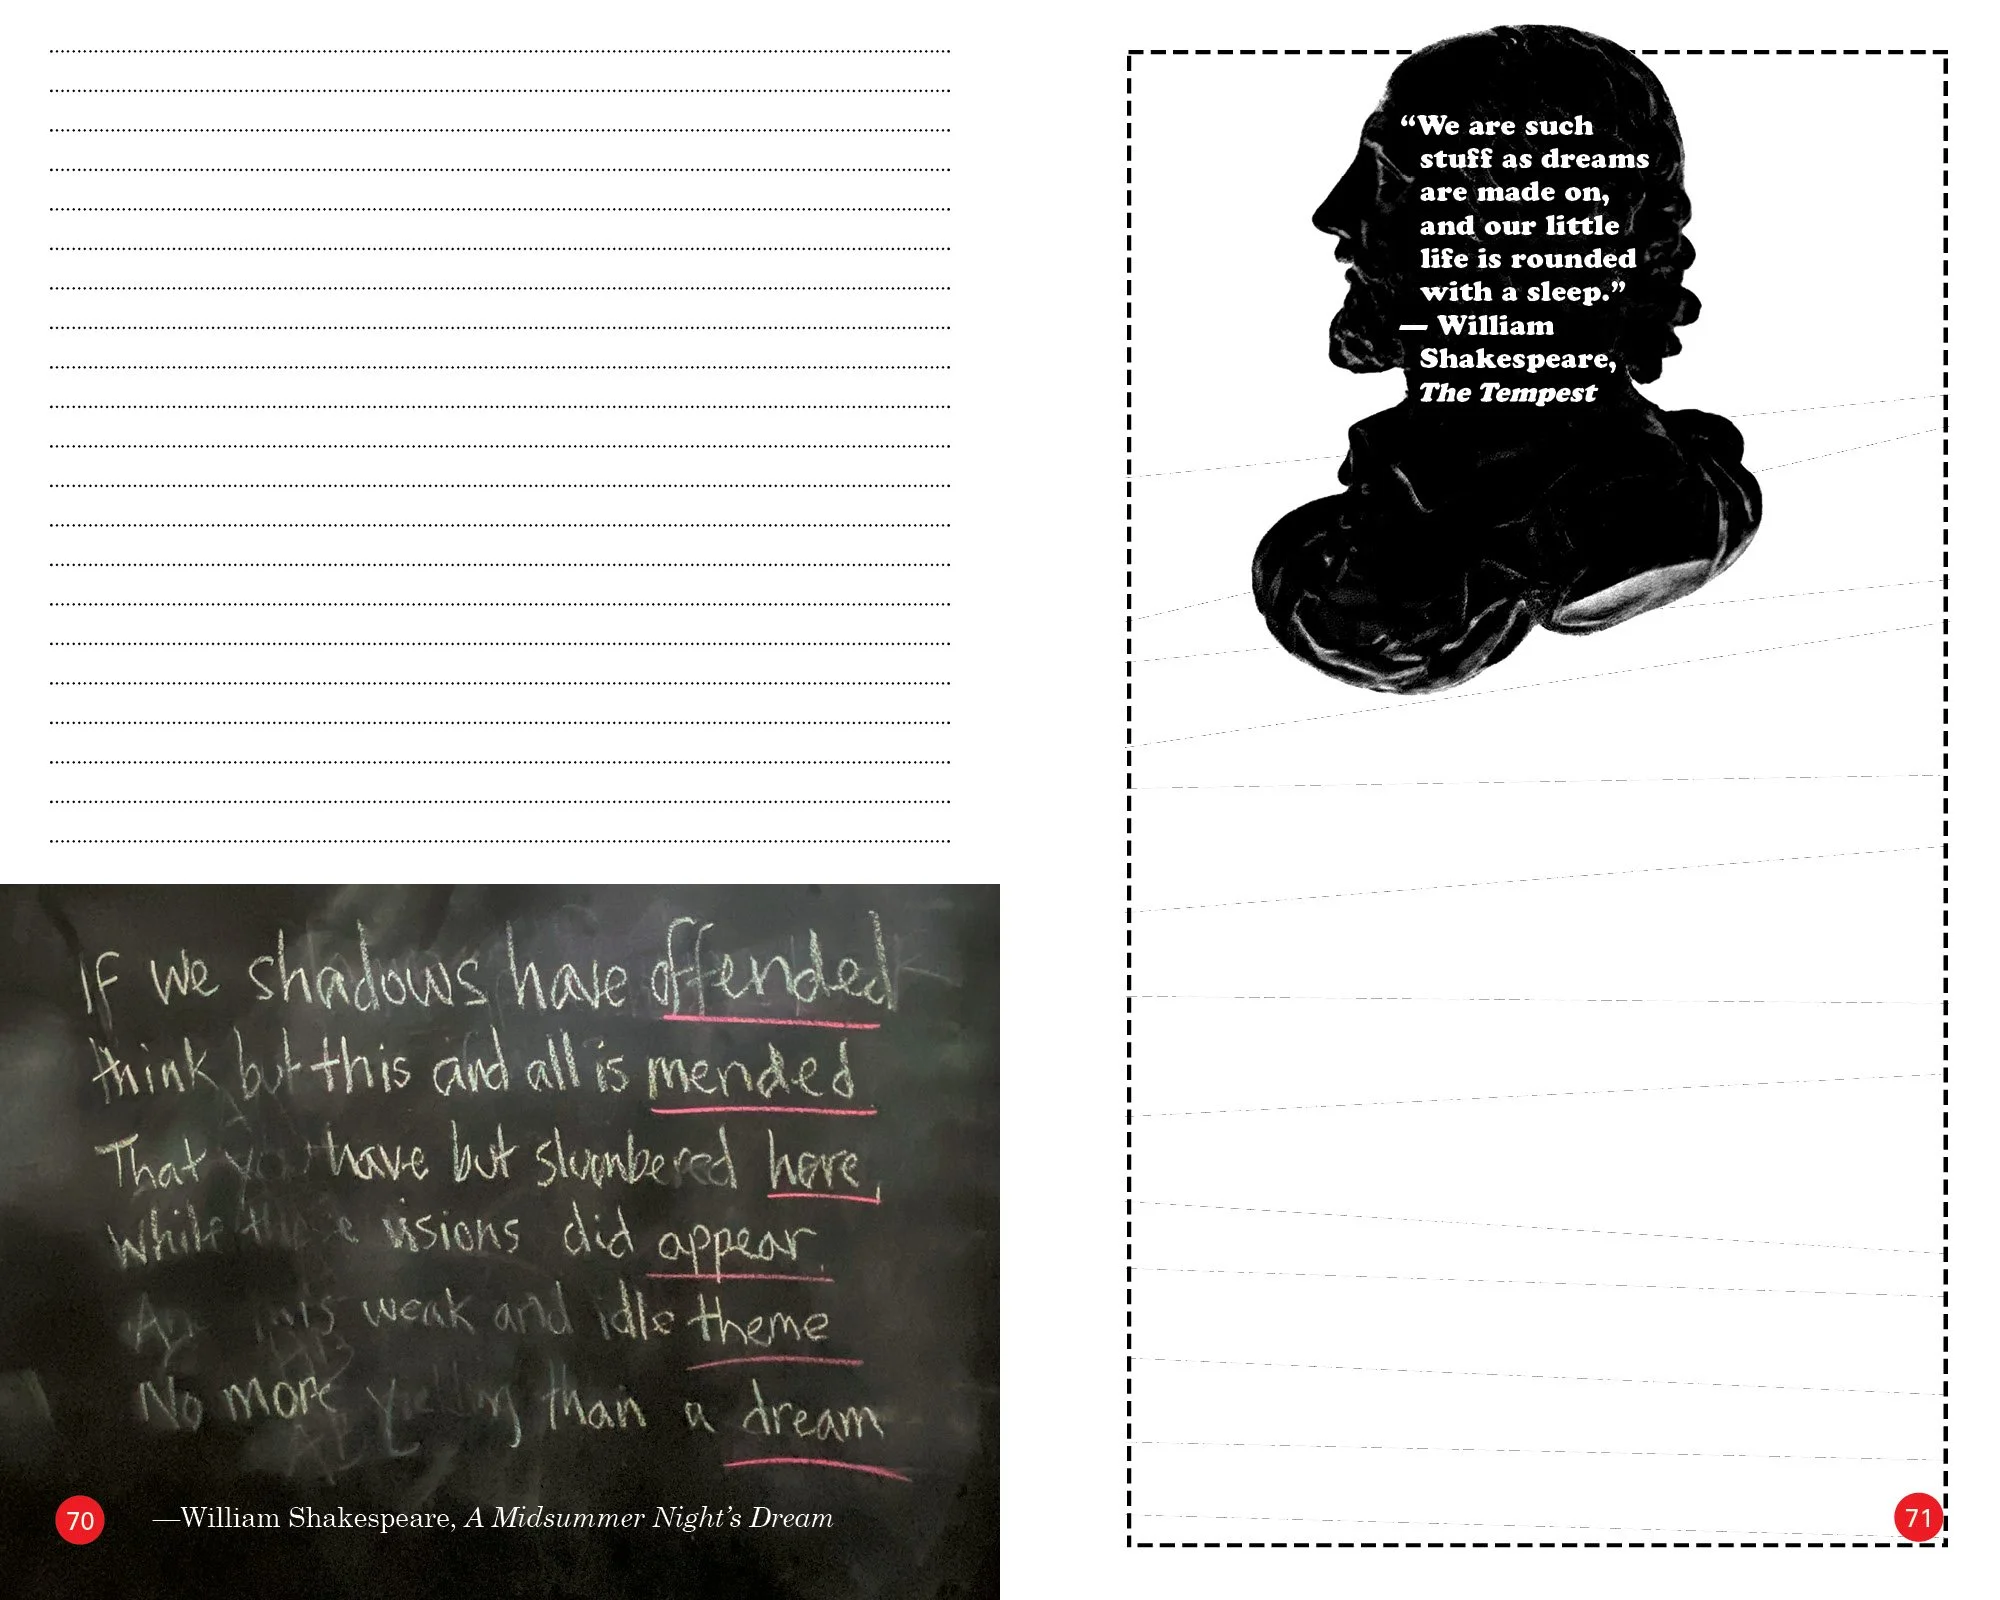 If we shadows have offended
think but this and all is mended
That you have but slumbered here,
while these visions did appear.
weak and idle theme
No more yielding than a dream
70
—William Shakespeare, A Midsummer Night's Dream
“We are such
stuff as dreams
are made on,
and our little
life is rounded
with a sleep.”
— William
Shakespeare,
The Tempest
71